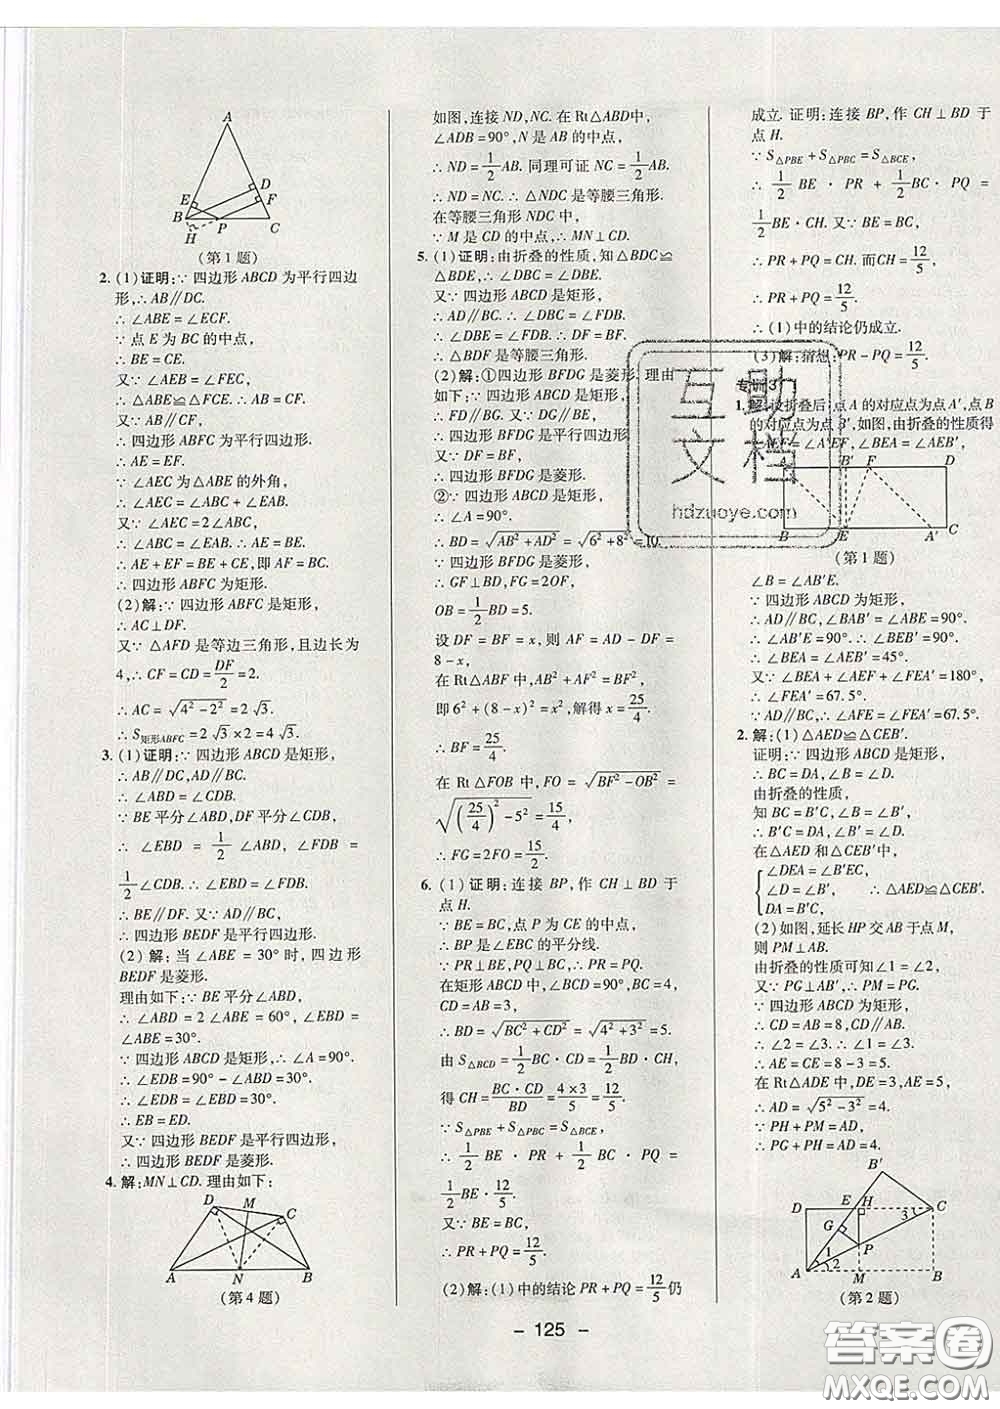 A
D
E
F
B
H
P
C
(第1题)
2. (1)证明:∵ 四边形 ABCD 为平行四边
形,∴ AB∥DC.
∴ ∠ABE = ∠ECF.
∵ 点 E 为 BC 的中点,
∴ BE = CE.
又∵ ∠AEB = ∠FEC,
∴ △ABE≌△FCE. ∴ AB = CF.
∴ 四边形 ABFC 为平行四边形.
∴ AE = EF.
∵ ∠AEC 为△ABE 的外角,
∴ ∠AEC = ∠ABC + ∠EAB.
又∵ ∠AEC = 2∠ABC,
∴ ∠ABC = ∠EAB. ∴ AE = BE.
∴ AE + EF = BE + EC,即 AF = BC.
∴ 四边形 ABFC 为矩形.
(2)解:∵ 四边形 ABFC 是矩形,
∴ AC⊥DF.
又∵ △AFD 是等边三角形,且边长为
4,∴ CF = CD = DF/2 = 2.
∴ AC = √(4² − 2²) = 2√3.
∴ S矩形ABFC = 2√3 × 2 = 4√3.
3. (1)证明:∵ 四边形 ABCD 是矩形,
∴ AB∥DC,AD∥BC.
∴ ∠ABD = ∠CDB.
∵ BE 平分∠ABD,DF 平分∠CDB,
∴ ∠EBD = 1/2 ∠ABD, ∠FDB =
1/2 ∠CDB. ∴ ∠EBD = ∠FDB.
∴ BE∥DF. 又∵ AD∥BC,
∴ 四边形 BEDF 是平行四边形.
(2)解:当∠ABE = 30°时,四边形
BEDF 是菱形.
理由如下:∵ BE 平分∠ABD,
∴ ∠ABD = 2∠ABE = 60°,∠EBD =
∠ABE = 30°.
∵ 四边形 ABCD 是矩形,∴ ∠A = 90°.
∴ ∠EDB = 90° − ∠ABD = 30°.
∴ ∠EDB = ∠EBD = 30°.
∴ EB = ED.
又∵ 四边形 BEDF 是平行四边形,
∴ 四边形 BEDF 是菱形.
4. 解:MN⊥CD. 理由如下:
D
M
C
A
N
B
(第4题)
如图,连接 ND,NC. 在 Rt△ABD中,
∠ADB = 90°,N 是 AB 的中点,
∴ ND = 1/2 AB. 同理可证 NC = 1/2 AB.
∴ ND = NC. ∴ △NDC 是等腰三角形.
在等腰三角形 NDC 中,
∵ M 是 CD 的中点,∴ MN⊥CD.
5. (1)证明:由折叠的性质,知△BDC≌
△BDE,∴ ∠DBC = ∠DBE.
又∵ 四边形 ABCD 是矩形,
∴ AD∥BC. ∴ ∠DBC = ∠FDB.
∴ ∠DBE = ∠FDB. ∴ DF = BF.
∴ △BDF 是等腰三角形.
(2)解:①四边形 BFDG 是菱形. 理由
如下:∵ 四边形 ABCD 是矩形,
∴ FD∥BG. 又∵ DG∥BE,
∴ 四边形 BFDG 是平行四边形.
又∵ DF = BF,
∴ 四边形 BFDG 是菱形.
②∵ 四边形 ABCD 是矩形,
∴ ∠A = 90°.
∴ BD = √(AB² + AD²) = √(6² + 8²) = 10.
∵ 四边形 BFDG 是菱形,
∴ GF⊥BD,FG = 2OF,
OB = 1/2 BD = 5.
设 DF = BF = x,则 AF = AD − DF =
8 − x,
在 Rt△ABF 中,AB² + AF² = BF²,
即 6² + (8 − x)² = x²,解得 x = 25/4.
∴ BF = 25/4.
在 Rt△FOB 中,FO = √(BF² − OB²) =
√((25/4)² − 5²) = 15/4.
∴ FG = 2FO = 15/2.
6. (1)证明:连接 BP,作 CH⊥BD 于
点 H.
∵ BE = BC,点 P 为 CE 的中点,
∴ BP 是∠EBC 的平分线.
∵ PR⊥BE,PQ⊥BC,∴ PR = PQ.
在矩形 ABCD 中,∠BCD = 90°,BC = 4,
CD = AB = 3,
∴ BD = √(BC² + CD²) = √(4² + 3²) = 5.
由 S△BCD = 1/2 BC · CD = 1/2 BD · CH,
得 CH = BC · CD/BD = 4×3/5 = 12/5.
∵ S△PBE + S△PBC = S△BCE,
∴ 1/2 BE · PR + 1/2 BC · PQ =
1/2 BE · 12/5.
又∵ BE = BC,
∴ PR + PQ = 12/5.
(2)解:(1)中的结论 PR + PQ = 12/5 仍
成立. 证明:连接 BP,作 CH⊥BD 于
点 H.
∵ S△PBE + S△PBC = S△BCE,
∴ 1/2 BE · PR + 1/2 BC · PQ =
1/2 BE · CH. 又∵ BE = BC,
∴ PR + PQ = CH. 而CH = 12/5,
∴ PR + PQ = 12/5.
∴ (1)中的结论仍成立.
(3)解:猜想:PR − PQ = 12/5.
专训3
1. 解:设折叠后,点 A 的对应点为点 A′,点 B
的对应点为点 B′,如图,由折叠的性质得
∠AEF = ∠A′EF,∠BEA = ∠AEB′,
A
B′
F
D
B
E
A′
C
(第1题)
∠B = ∠AB′E.
∵ 四边形 ABCD 为矩形,
∴ AD∥BC,∠BAB′ = ∠ABE = 90°.
∴ ∠AB′E = 90°. ∴ ∠BEB′ = 90°.
∴ ∠BEA = ∠AEB′ = 45°.
又∵ ∠BEA + ∠AEF + ∠FEA′ = 180°,
∴ ∠FEA′ = 67.5°.
∵ AD∥BC,∴ ∠AFE = ∠FEA′ = 67.5°.
2. 解:(1)△AED≌△CEB′.
证明:∵ 四边形 ABCD 为矩形,
∴ BC = DA,∠B = ∠D.
由折叠的性质,
知 BC = B′C,∠B = ∠B′,
∴ B′C = DA,∠B′ = ∠D.
在△AED 和△CEB′中,
∠DEA = ∠B′EC,
∠D = ∠B′, ∴ △AED≌△CEB′.
DA = B′C,
(2)如图,延长 HP 交 AB 于点 M,
则 PM⊥AB.
由折叠的性质可知∠1 = ∠2,
又∵ PG⊥AB′,∴ PM = PG.
∵ 四边形 ABCD 为矩形,
∴ CD = AB = 8,CD∥AB.
∴ ∠2 = ∠3. ∴ ∠1 = ∠3.
∴ AE = CE = 8 − 3 = 5.
在 Rt△ADE 中,DE = 3,AE = 5,
∴ AD = √(5² − 3²) = 4.
∵ PH + PM = AD,
∴ PG + PH = AD = 4.
B′
D
E
H
C
3
G
P
1
2
A
M
B
(第2题)
互助文档
hdzuoye.com
- 125 -
答案圈
MXQE.COM